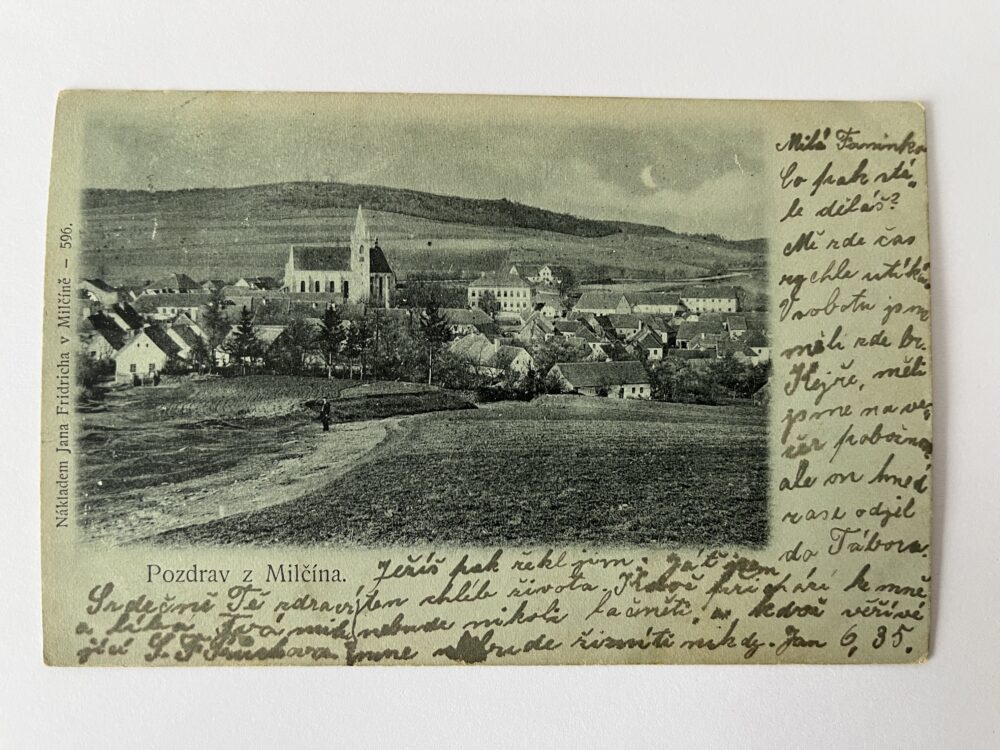 Nákladem Jana Fridricha v Milčíně – 596.
Milá Faninko
Co pak stá-
le děláš?
Mě zde čas
rychle utíká
V sobotu jsm
měli zde br.
Kejře, měli
jsme na ve-
čer pobožno
ale on hned
zase odjel
do Tábora.
Pozdrav z Milčína.
Ježíš pak řekl jim: Játě jsem
Srdečně Tě zdraví ten chléb života. Kdož přichází ke mně
a líbá Tvá nebude nikoli lačněti, a kdož věřívé
jící S. F. mne nebude žízniti nikdy. Jan 6, 35.